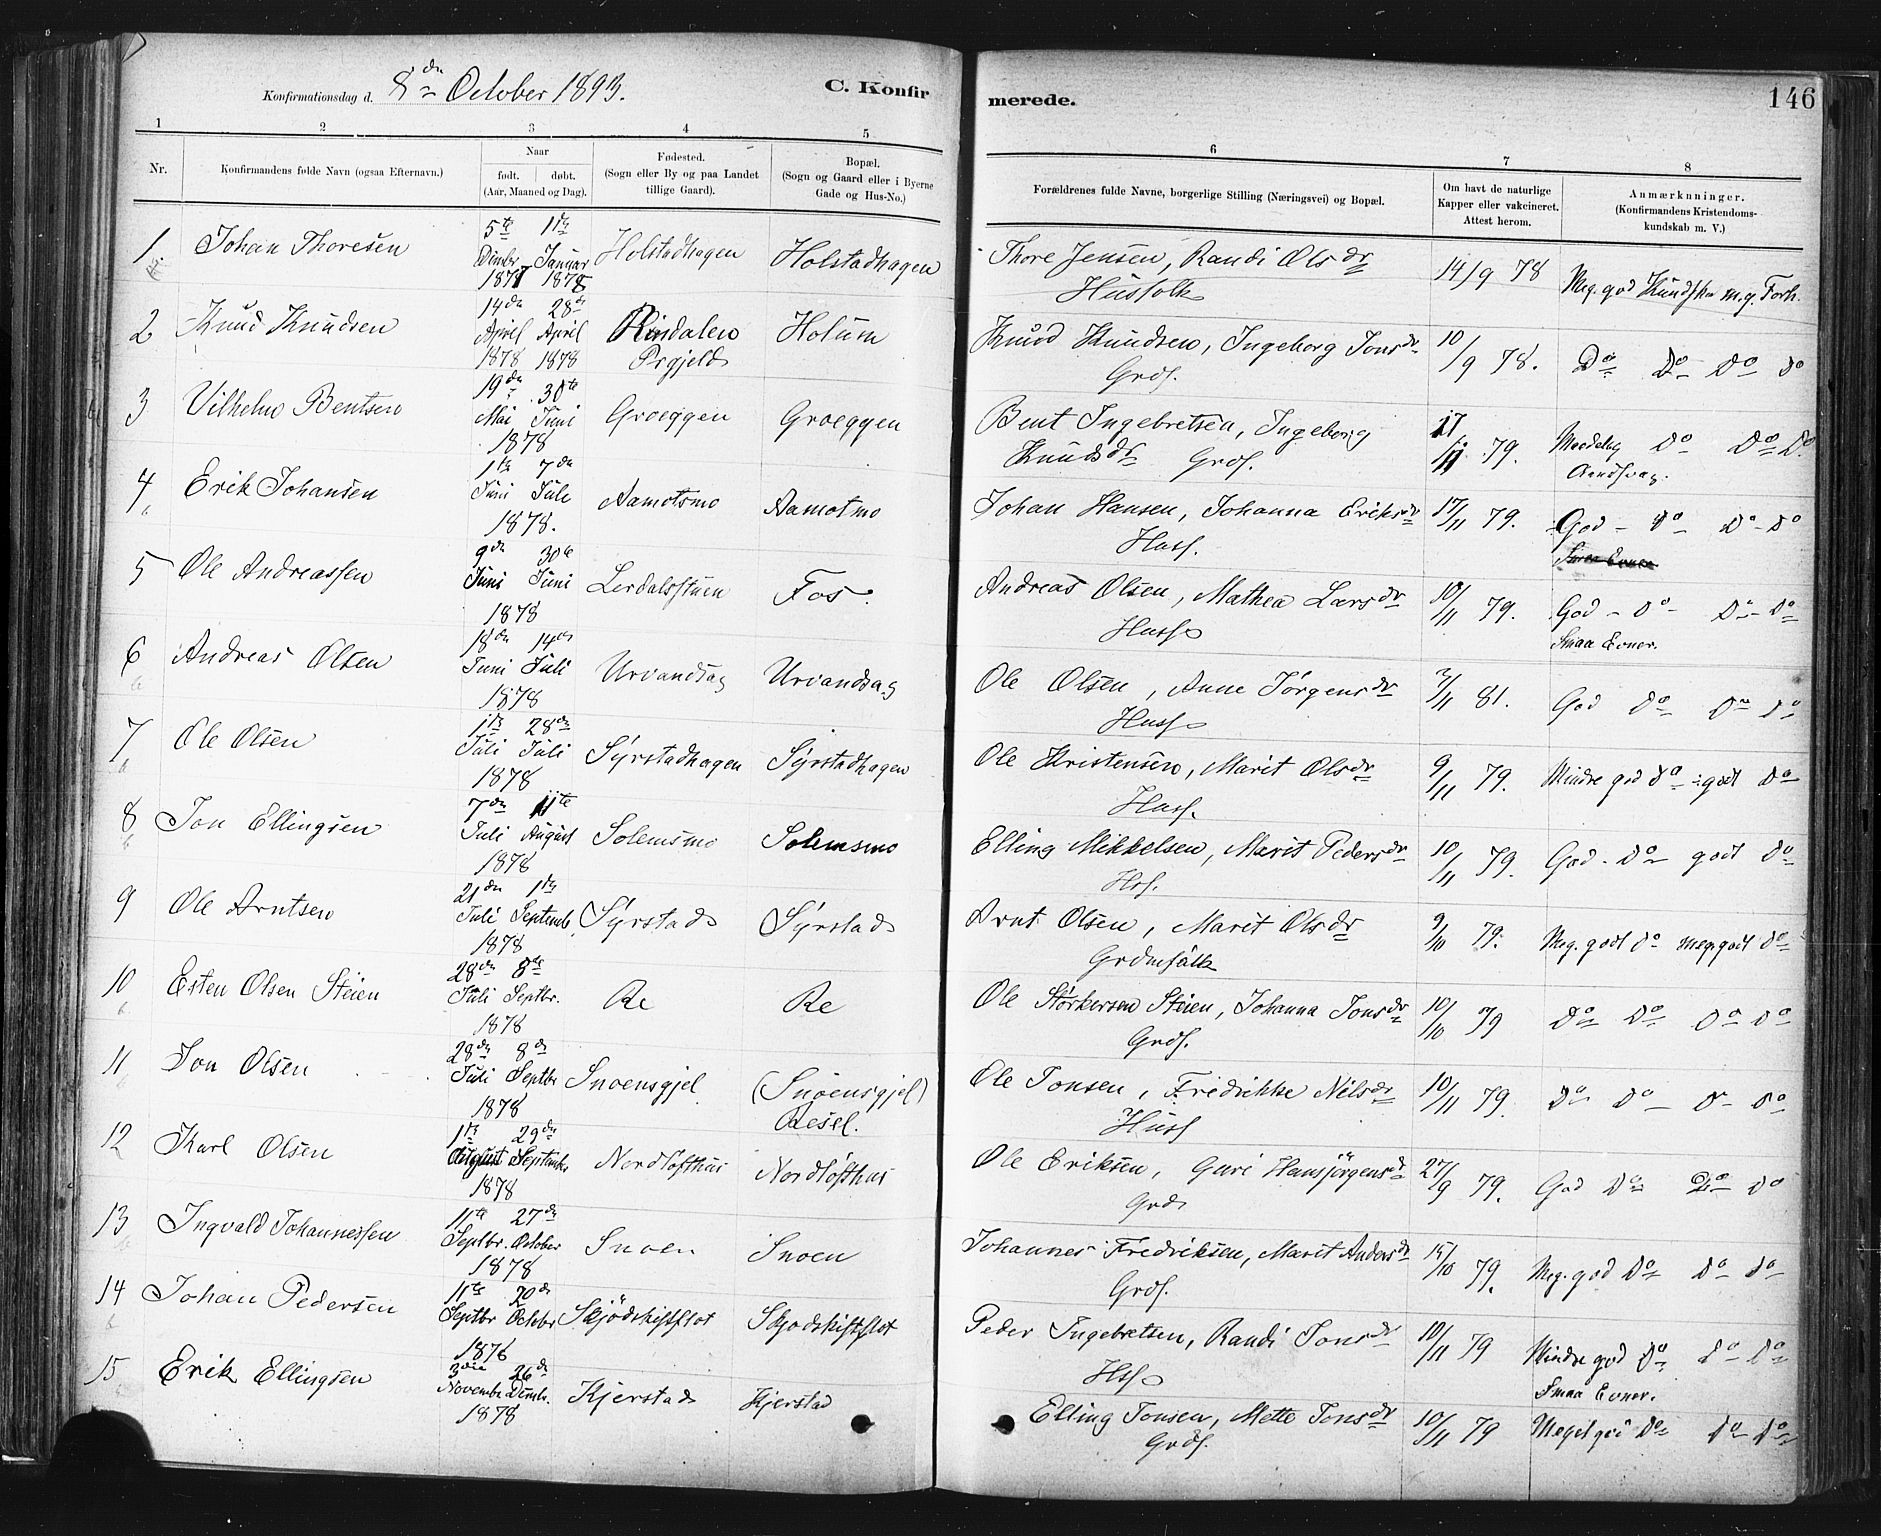 Konfirmationsdag d. 8de October 1893. C. Konfirmerede. 146
1 2 3 4 5 6 7 8
Nr. Konfirmandens folde Navn (ogsaa Efternavn.) Naar født. døbt. (Aar, Maaned og Dag). Fødested. (Sogn eller By og paa Landet tillige Gaard). Bopæl. (Sogn og Gaard eller i Byerne Gade og Hus-No.) Forældrenes fulde Navne, borgerlige Stilling (Næringsvei) og Bopæl. Om havt de naturlige Kapper eller vakcineret. Attest herom. Anmærkninger. (Konfirmandens Kristendomskundskab m. V.)
1. Johan Thoresen 5te Dembr 1877 1ste Januar 1878 Holstadhagen Holstadhagen Thore Jensen, Randi Olsdr Husfolk 14/9 78 Meg. god Kundsk. m.g. Forh.
2 Knud Knudsen 14de April 1878 28de April 1878 Rindalens Prgjeld Holum Knud Knudsen, Ingeborg Jonsdr Grdf. 10/9 78. Do Do Do Do
3 Vilhelm Bentsen 19de Mai 30te Juni 1878 Groeggen Groeggen Bent Ingebretsen, Ingeborg Knudsdr Grdf. 17/11 79. Do Do Do
4 Erik Johansen 1ste Juni 7de Juli 1878. Aamotsmo Aamotmo Johan Hansen, Johanna Eriksdr Husf. 17/11 79. God - Do Do - Do Smaa Evner
5 Ole Andreassen 9de Juni 30te Juni 1878 Lerdalsstuen Fos. Andreas Olsen, Mathea Larsdr Husf. 10/11 79. God - Do - Do - Do Smaa Evner.
6 Andreas Olsen 18de Juni 14de Juli 1878 Urvandsag Urvandsag Ole Olsen, Anne Jørgensdr Husf. 2/11 81. God Do Do Do
7 Ole Olsen 1ste Juli 28de Juli 1878 Syrstadhagen Syrstadhagen Ole Kristensen, Marit Olsdr Husf. 9/11 79. Mindre god Do godt Do
8 Jon Ellingsen 7de Juli 11te August 1878 Solemsmo Solemsmo Elling Mikkelsen, Marit Pedersdr Hsf. 10/11 79. God - Do godt Do
9 Ole Arntsen 21de Juli 1ste Septemb 1878 Syrstad Syrstad Arnt Olsen, Marit Olsdr Grdmfolk 9/10 79. Meg. godt Do meg. godt Do
10 Esten Olsen Steien 28de Juli 8de Septbr. 1878 Re Re Ole Størkersen Steien, Johanna Jonsdr Grdf. 10/10 79 Do Do Do Do
11 Jon Olsen 28de Juli 8de Septbr 1878 Snoensgjel (Snoensgjel) Resel. Ole Jonsen, Fredrikke Nilsdr Husf 10/11 79. Do Do Do Do
12 Karl Olsen 1ste August 29de Septembr 1878 Nordløfthus Nordløfthus Ole Eriksen, Guri Hansjørgensdr Grd 27/9 79. God Do Do Do
13 Ingvald Johannessen 11te Septbr. 27de October 1878 Snoen Snoen Johannes Fredriksen, Marit Andersdr Grdf. 15/10 79. Meg. god Do Do Do
14 Johan Pedersen 11te Septbr 20de Octobr 1878 Skjødskiftflot Skjodskiftflot Peder Ingebretsen, Randi Jonsdr Hsf. 10/11 79 Mindre god Do Do Do Smaa Evner.
15 Erik Ellingsen 3die Novembr 26de Dembr. 1878 Kjerstad Kjerstad Elling Jonsen, Mette Jonsdr Grdf. 10/11 79 Meget god Do Do Do